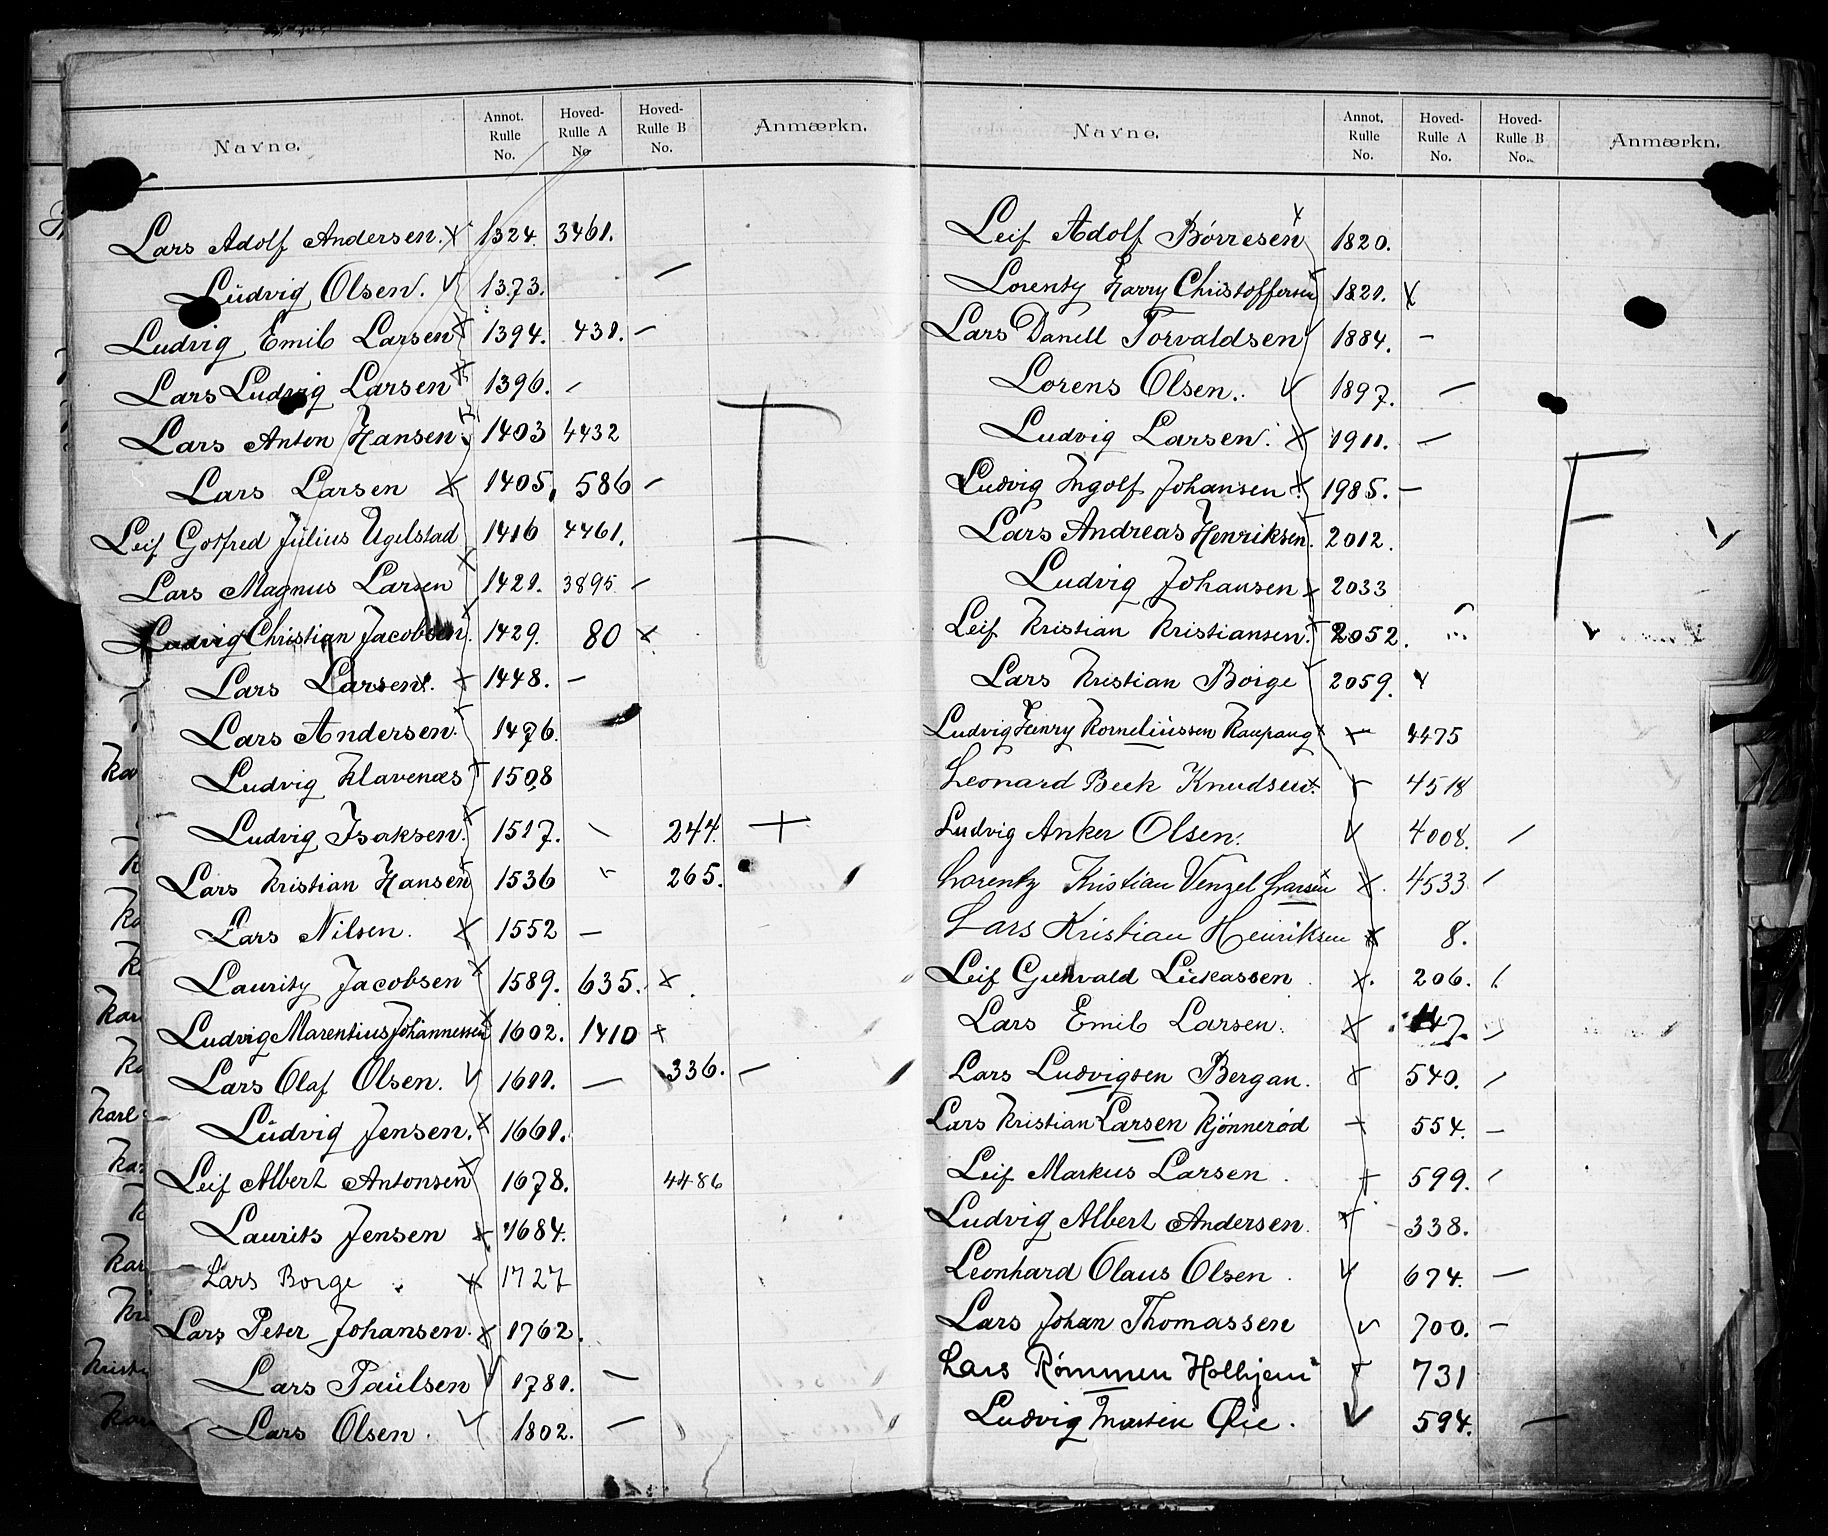 Navne. Annot. Rulle No. Hoved-Rulle A No Hoved-Rulle B No. Anmærkn.
Lars Adolf Andersen. 1324. 3461.
Ludvig Olsen. 1373. —
Ludvig Emil Larsen 1394. 431. —
Lars Ludvig Larsen 1396. —
Lars Anton Hansen. 1403 4432
Lars Larsen 1405. 586 —
Leif Gotfred Julius Ugelstad 1416 4461.
Lars Magnus Larsen 1421. 3895 —
Ludvig Christian Jacobsen. 1429. 80 x
Lars Larsen. 1448. —
Lars Andersen. 1476.
Ludvig Klavenæs 1508
Ludvig Isaksen. 1517. 244. +
Lars Kristian Hansen 1536 265.
Lars Nilsen. 1552 —
Lauritz Jacobsen 1589. 635. x
Ludvig Marentius Johannessen 1602. 1410 x
Lars Olaf Olsen. 1611. — 336. —
Ludvig Jensen. 1661.
Leif Albert Antonsen 1678. 4486
Laurits Jensen 1684.
Lars Borge 1727
Lars Peter Johansen. 1762.
Lars Paulsen 1781. —
Lars Olsen. 1802. —
F
Navne. Annot. Rulle No. Hoved-Rulle A No. Hoved-Rulle B No. Anmærkn.
Leif Adolf Børresen 1820.
Lorentz Harry Christoffersen 1821. x
Lars Daniell Torvaldsen 1884. —
Lorens Olsen. 1897. —
Ludvig Larsen. 1911. —
Ludvig Ingolf Johansen. 1985. —
Lars Andreas Henriksen. 2012.
Ludvig Johansen 2033
Leif Kristian Kristiansen. 2052.
Lars Kristian Borge 2059.
Ludvig Henry Korneliussen Kaupang 4475
Leonard Beck Knudsen. 4518
Ludvig Anker Olsen. 4008.
Lorentz Kristian Venzel Larsen 4533
Lars Kristian Henriksen 8.
Leif Gunvald Lukassen 206.
Lars Emil Larsen. 47.
Lars Ludvigsen Bergan. 540.
Lars Kristian Larsen Kjønnerød 554. —
Leif Markus Larsen 599.
Ludvig Albert Andersen. 338.
Leonhard Olaus Olsen 674. —
Lars Johan Thomassen 700. —
Lars Rømmen Holhjem 731
Ludvig Martin Øie. 594. —
F